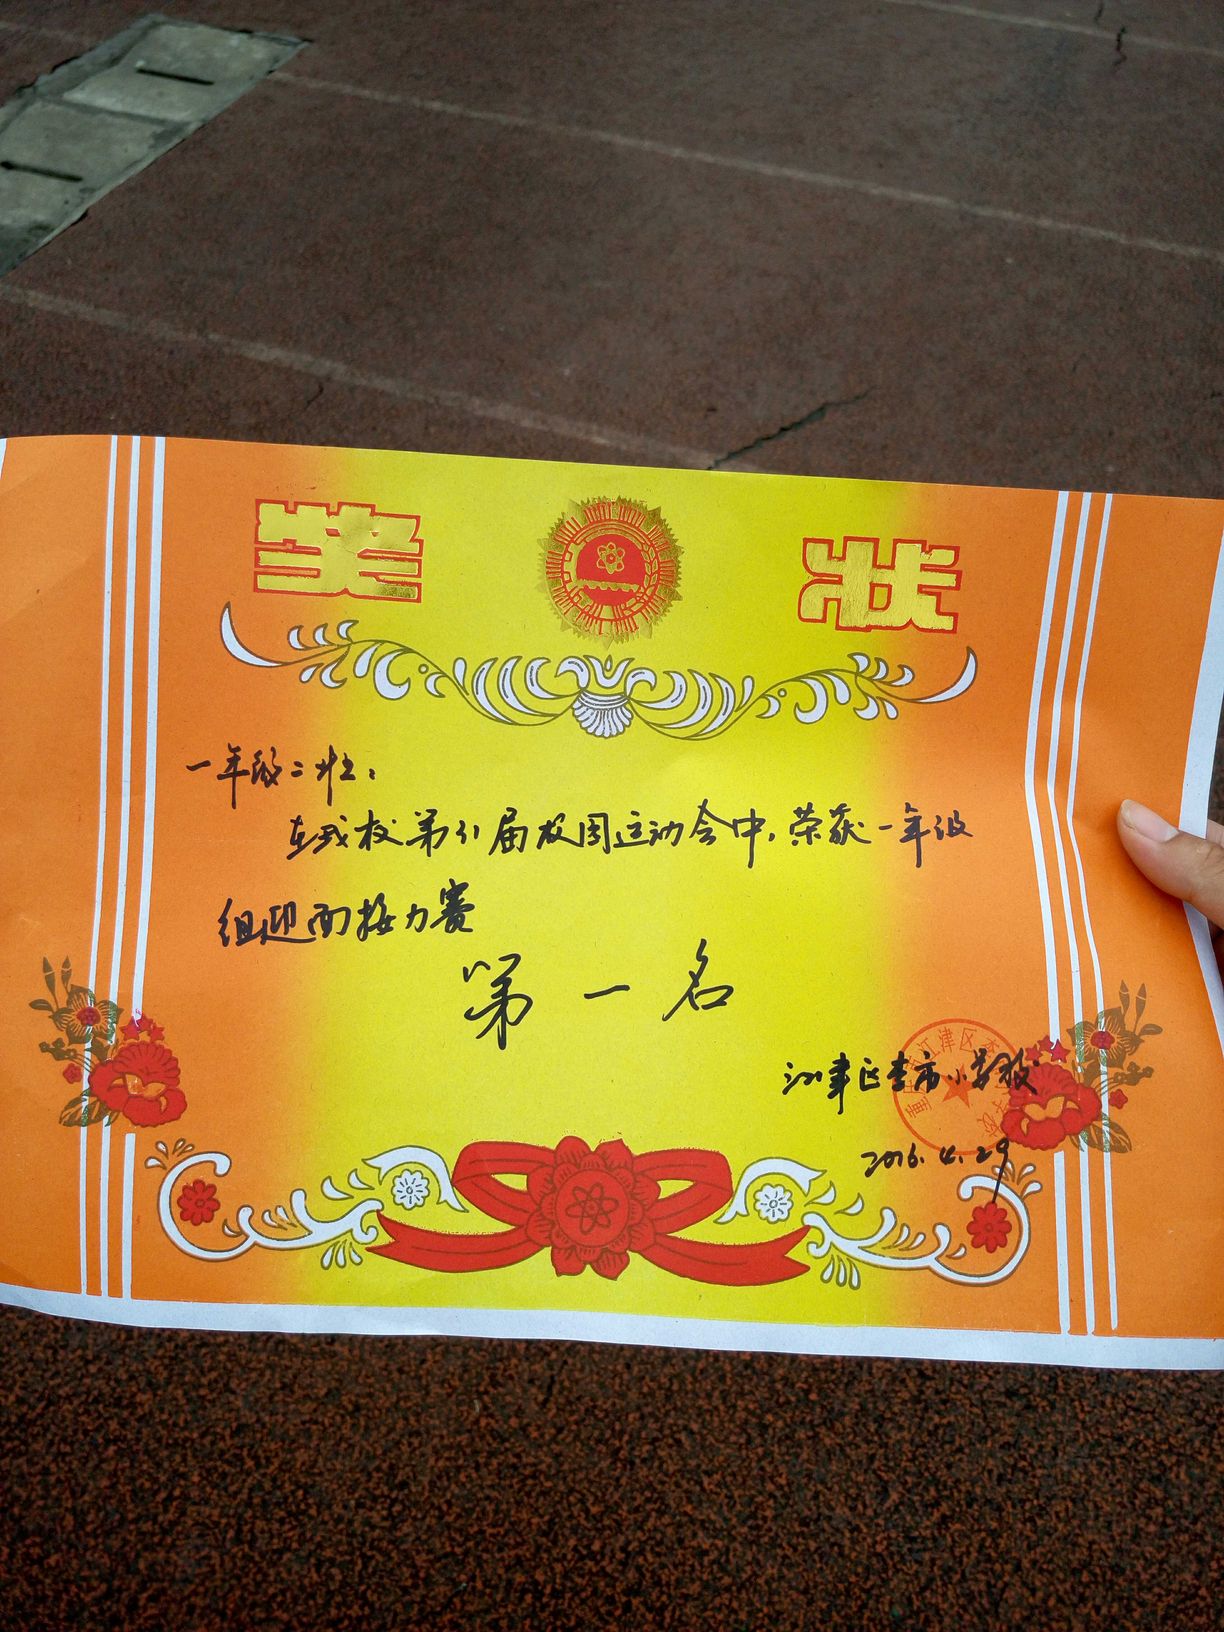 奖 状
一年级二班：
在我校第31届校园运动会中，荣获一年级
组迎面接力赛
第一名
江津区李市小学校
2016.4.29